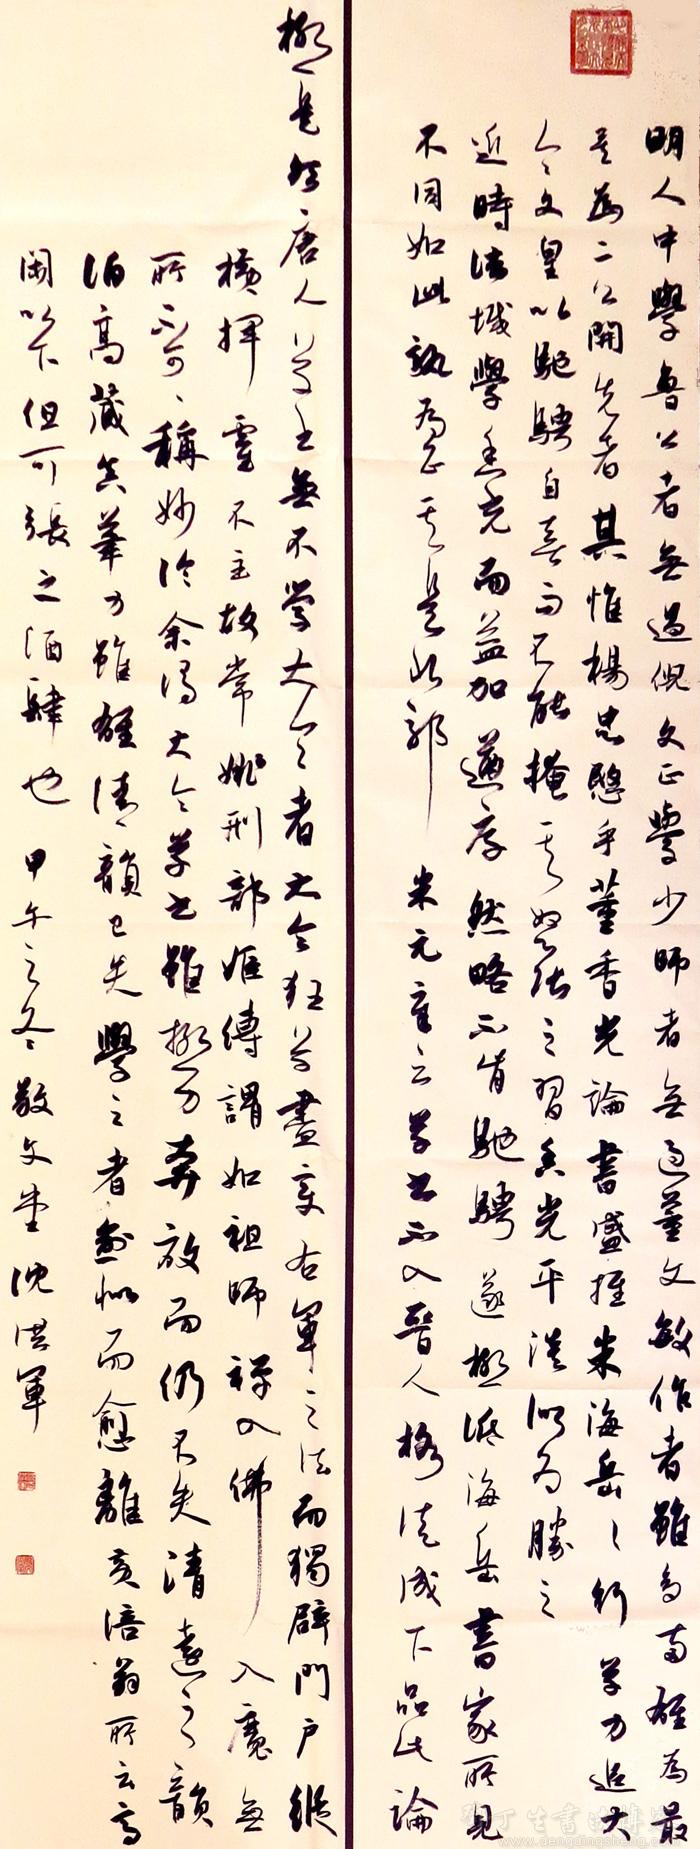 明人中學魯公者無過倪文正學少師者無過董文敏作者雖多南離為最
至為二公開先者其惟楊忠愍乎董香光論書盛推米海岳海岳行草力追大
令文皇以馳騁自喜而不能掩其怒張之習香光平淡似為勝之
近時海城學香光而益加遒厚然略不肯馳騁遂極詆海岳書家所見
不同如此孰為正是非耶 米元章云草書不入晉人格徒成下品此論
極是然唐人草書無不學大令者大令狂草盡變右軍之法而獨辟門戶縱
橫揮霍不主故常姚刑部姬傳謂如祖師禪入佛入魔無
所不可可稱妙評余謂大令草書雖極力奔放而仍不失清遠之韻
高藏真筆力雖雄清韻已失學之者愈似而愈離黃涪翁所云高
閑以下但可張之酒肆也 甲午之冬敬文堂沈洪軍
www.dengdingsheng.com